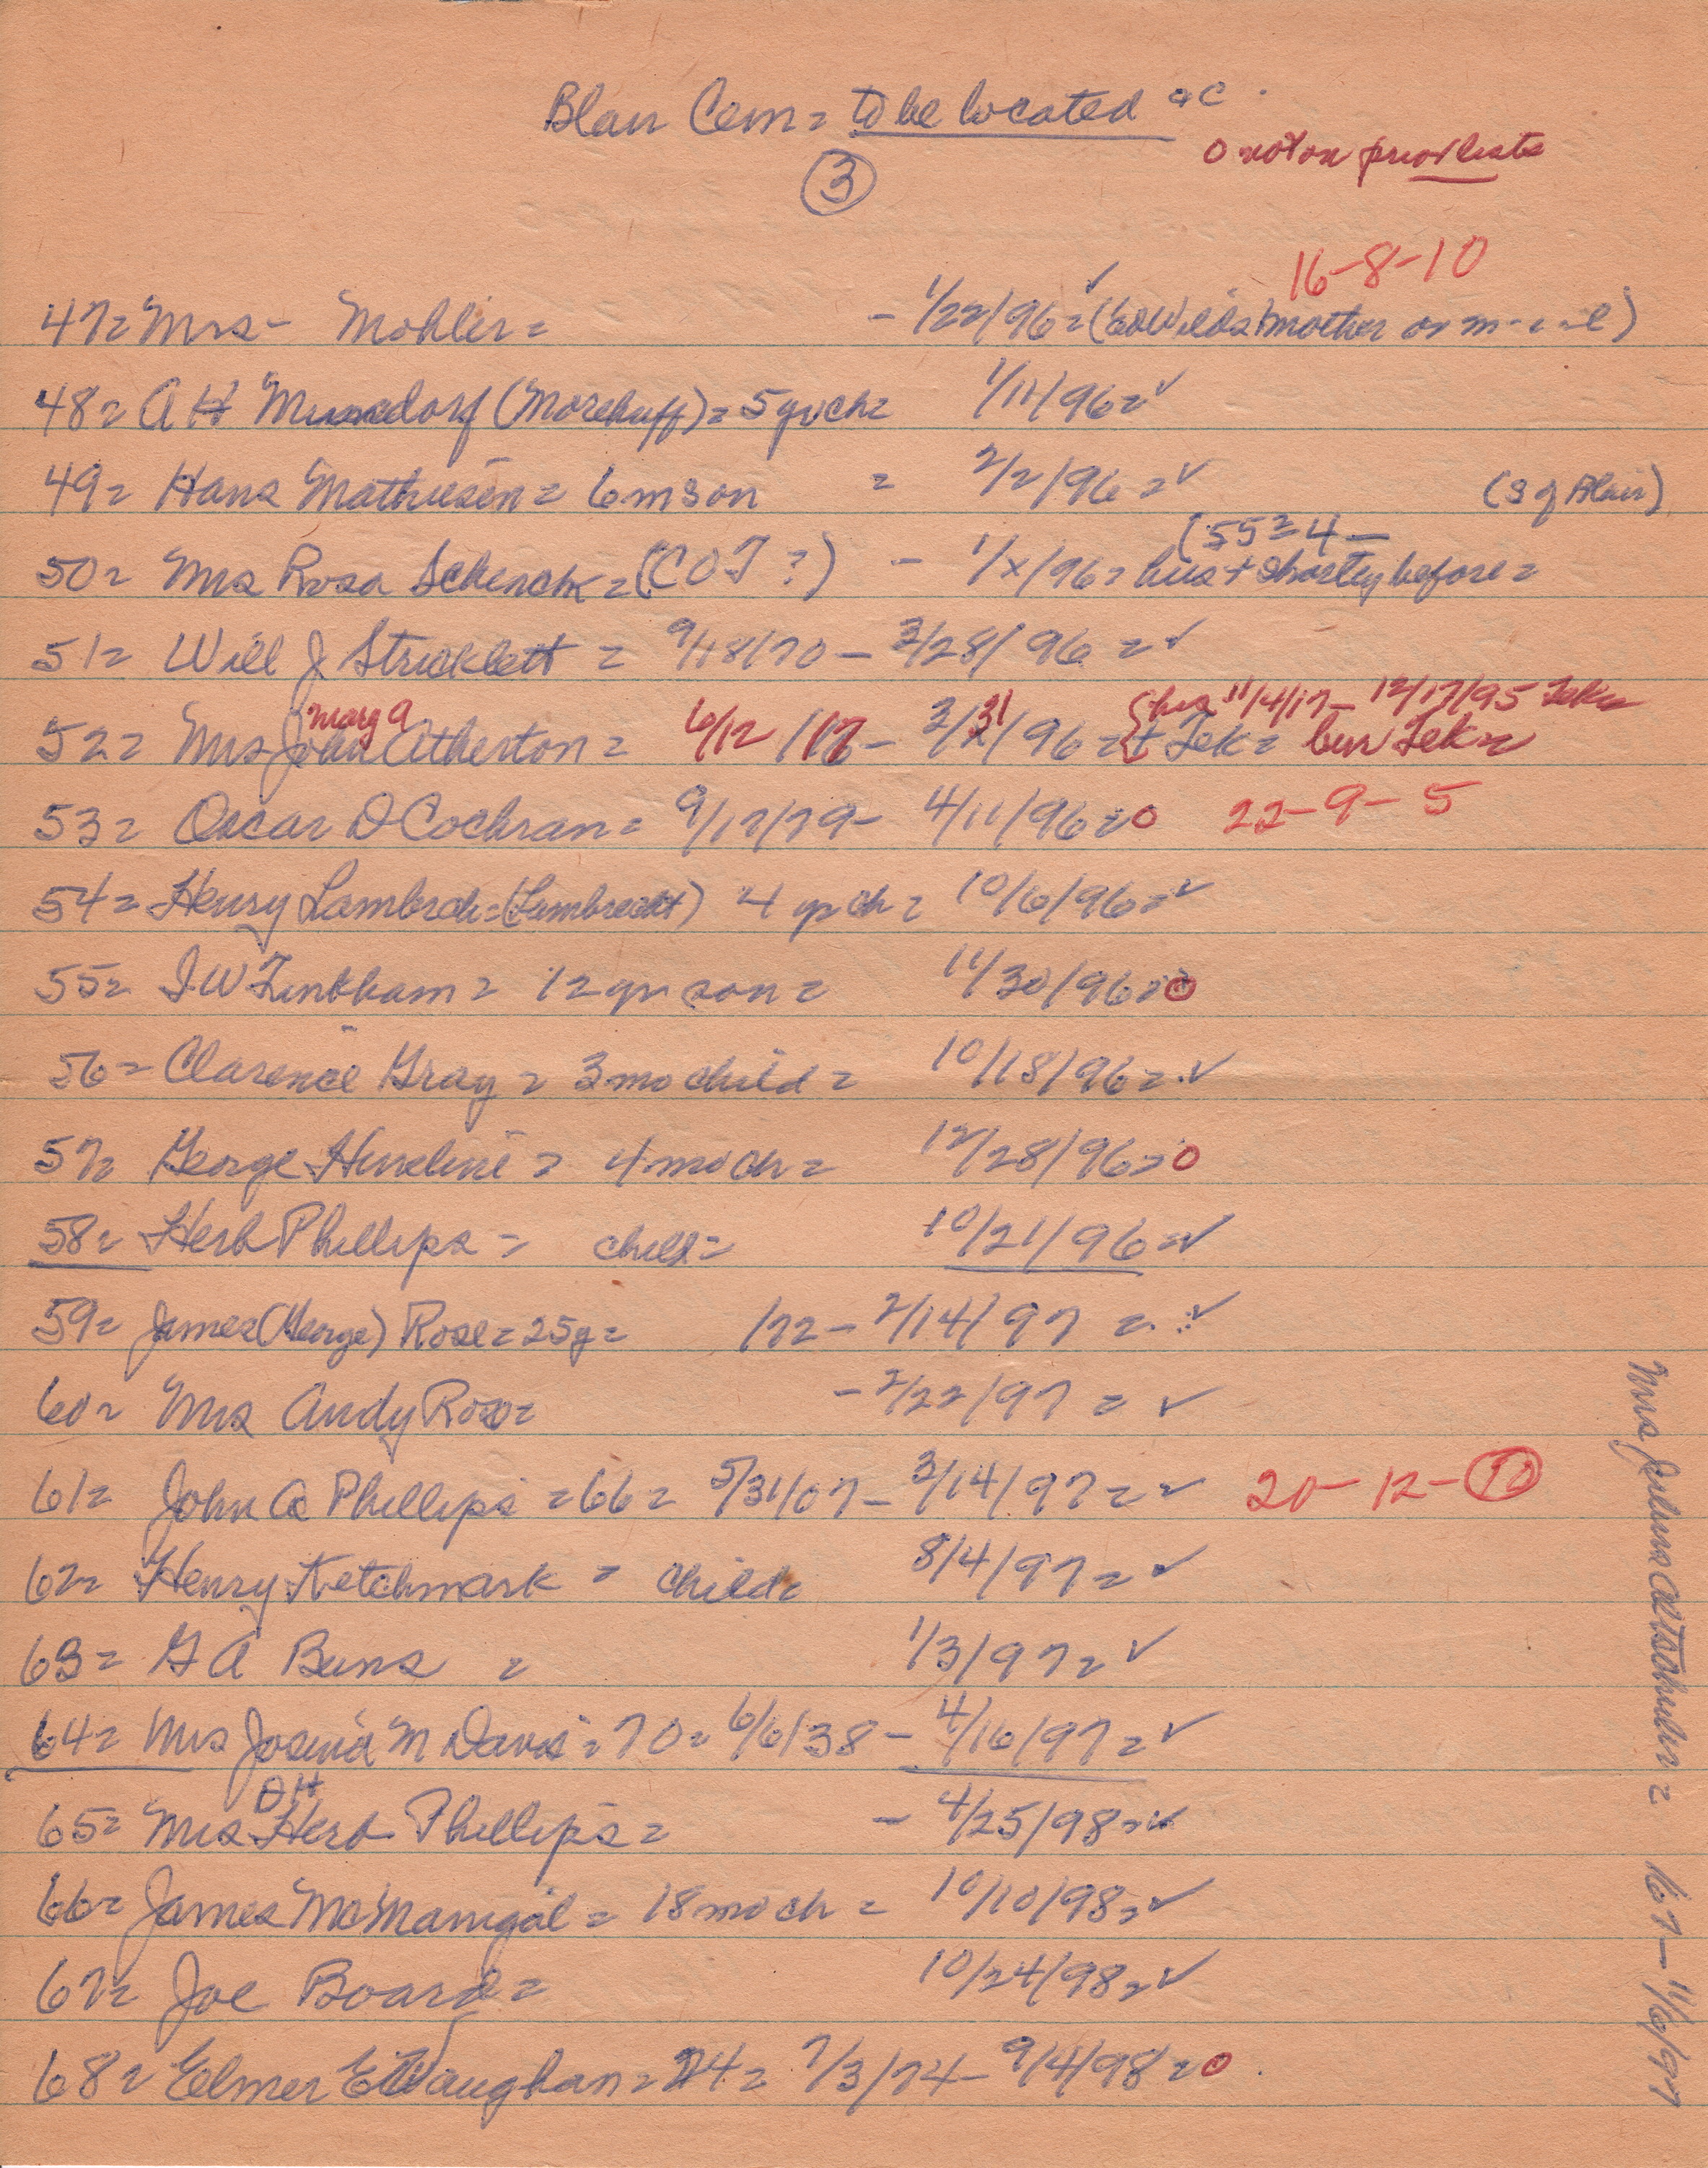 Blair Cem = to be located
o not on prior lists
3
16-8-10
47= Mrs - Mohler= - 1/22/96 = ✓ (Ed Wilds mother or m-i-l)
48= A H (Morehuff) = 5 yr ch= 1/11/96=✓
49= Hans Mathiesen = 6 m son = 2/2/96 =✓ (S of Blair)
(55= 4-
50= Mrs Rosa Schenck = (COT?) - 1/x/96= hus + shortly before=
51= Will J Stricklett = 9/18/70 - 3/28/96 =✓
Mary A 31 {hus 11/4/17- 12/17/95 Tek=
52= Mrs John Atherton = 6/12/17- 3/ /96= + Tek= bur Tek=
53= Oscar D Cochran= 9/17/79- 4/11/96=o 22-9-5
54= Henry Lambrch=(Lambrecht) 4 yr ch= 10/6/96=✓
55= I W Tinkham= 12 yr son= 11/30/96=o
56= Clarence Gray= 3 mo child= 10/18/96=✓
57= George Hineline= 4 mo ch= 12/28/96=o
58= Herb Phillips= child= 10/21/96=✓
59= James (George) Rose=25y= /72- 2/14/97 =✓
60= Mrs Andy Rose= -2/22/97 = ✓
61= John A Phillips =66= 5/31/07- 3/14/97== ✓ 20-12-10
62= Henry Ketchmark = child= 8/4/97= ✓
63= G A Buns = 1/3/97= ✓
64= Mrs M Davis=70= 6/6/38- 4/16/97=✓
D H
65= Mrs Herb Phillips= - 4/25/98=✓
66= James McManigal= 18 mo ch= 10/10/98=✓
67= Joe Board= 10/24/98=✓
68= Elmer E Vaughan= 24= 7/3/74- 9/4/98=o
Mrs Julius Altschuler= 167- 11/6/97